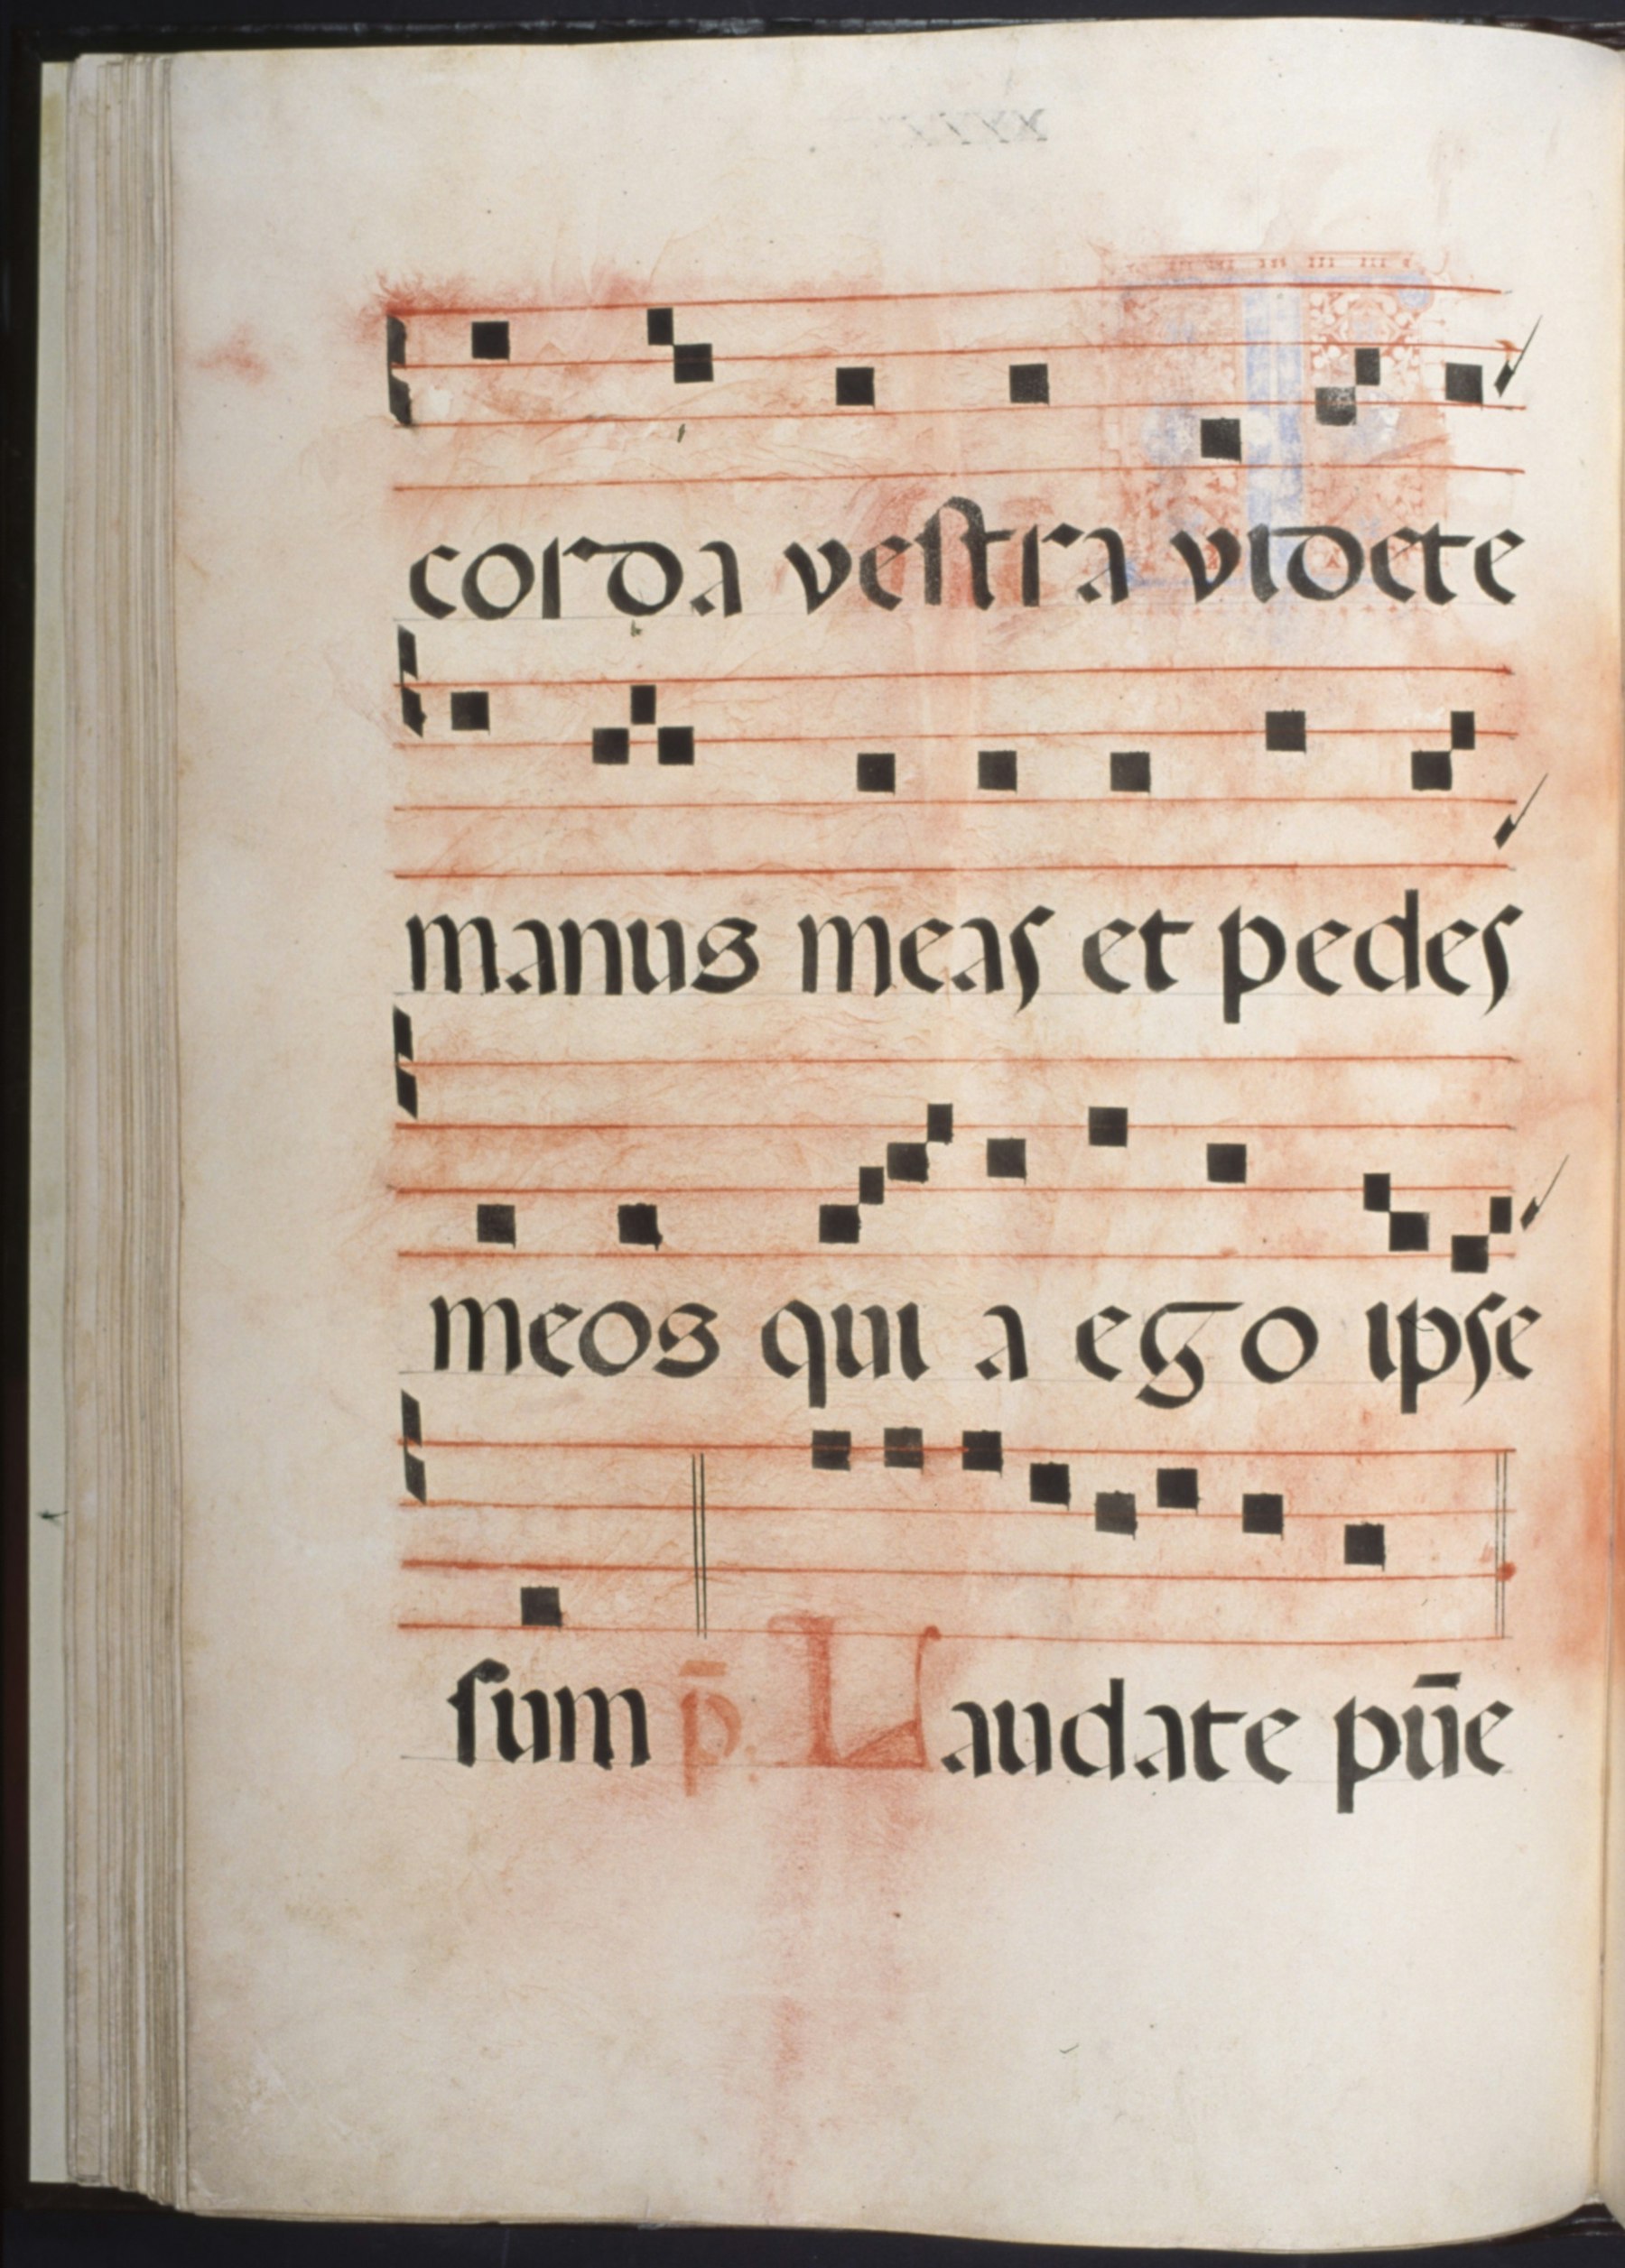 corda vestra videte
manus meas et pedes
meos qui a ego ipse
sum p̄. Laudate pūe